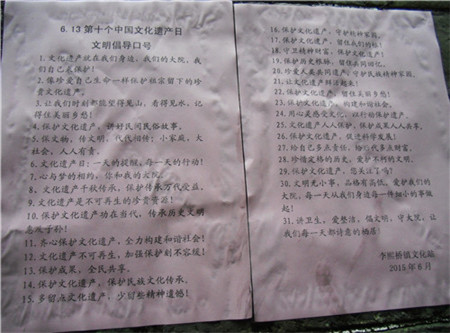 6.13第十个中国文化遗产日
文明倡导口号
1.文化遗产就在我们身边,我们的大院,我
们自己来保护!
2.像珍爱自己生命一样保护祖宗留下的珍
贵文化遗产。
3.让我们时刻都能望得见山,看得见水,记
得住美丽乡愁!
4.保护文化遗产,讲好民间民俗故事。
5.保文物,传文明,代代相传;小家庭,大
社会,人人有责。
6.文化遗产日:一天的提醒,每一天的行动!
7.心与梦的相约,你和我的大院。
8.文化遗产千秋传承,保护传承万代受益。
9.文化遗产是不可再生的珍贵资源!
10.保护文化遗产功在当代,传承历史文明
惠及子孙!
11.齐心保护文化遗产,全力构建和谐社会!
12.文化遗产不可再生,加强保护刻不容缓!
13.保护成果,全民共享。
14.保护文化遗产,保护民族文化传承。
15.多留点文化遗产,少留些精神遗憾!
16.保护文化遗产,守护精神家园。
17.保护文化遗产,留住我们的根!
18.守卫精神财富,保护文化遗产!
19.保护历史根脉,留住共同回忆。
20.珍爱人类共同遗产,守护民族精神家园。
21.让文化遗产鲜活起来!
22.保护文化遗产,留住美丽乡愁!
23.保护文化遗产,构建和谐社会。
24.用心灵感受文化,以行动保护遗产。
25.文化遗产人人保护,保护成果人人共享。
26.保护文化遗产,促进科学发展!
27.给自己多点责任,给后代多点财富。
28.珍惜定格的历史,爱护不朽的文明。
29.保护文化遗产,您关注了吗?
30.文明无小事,品格有高低,爱护我们的
大院,每一天从我们身边每一件细小的事做
起!
31.讲卫生,爱整洁,倡文明,守大院,让
我们每一天都诗意的栖居!
李熙桥镇文化站
2015年6月